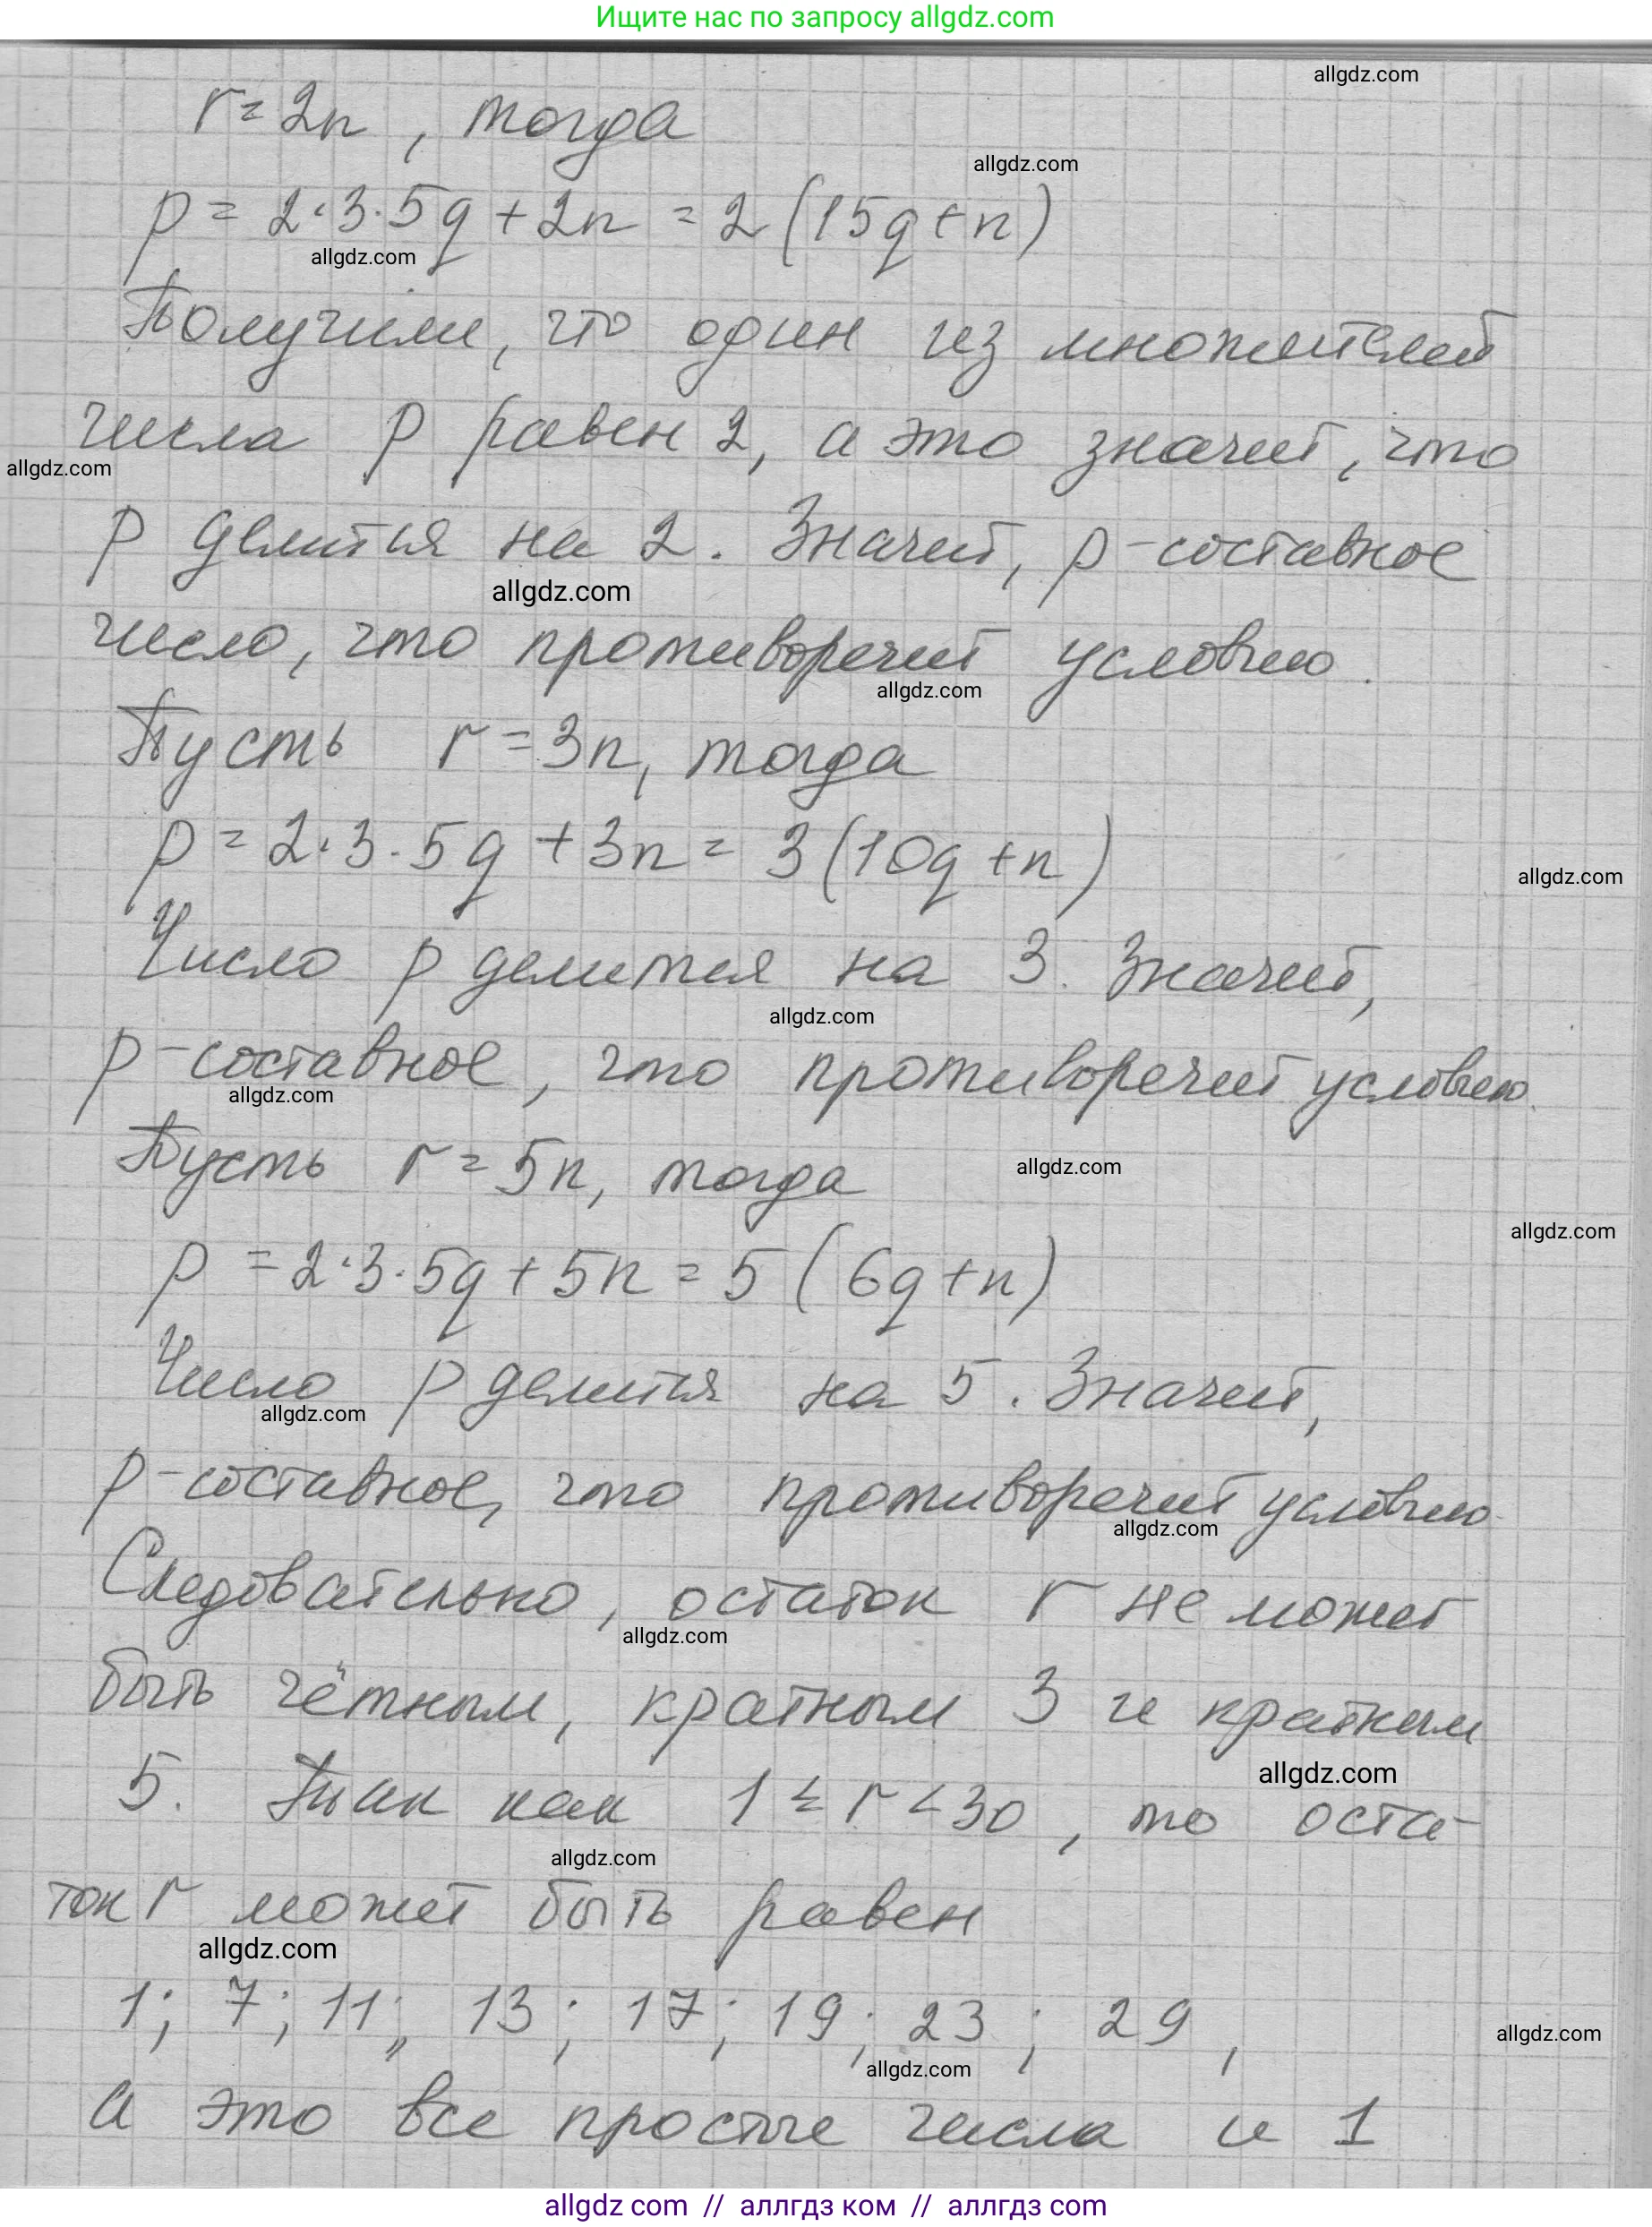 Ищите нас по запросу allgdz.com
allgdz.com
r = 2n, тогда
allgdz.com
p = 2·3·5q + 2n = 2(15q + n)
allgdz.com
Получим, что один из множителей
числа p равен 2, а это значит, что
allgdz.com
p делится на 2. Значит, p - составное
allgdz.com
число, что противоречит условию.
allgdz.com
Пусть r = 3n, тогда
p = 2·3·5q + 3n = 3(10q + n)
allgdz.com
Число p делится на 3. Значит,
allgdz.com
p - составное, что противоречит условию.
allgdz.com
Пусть r = 5n, тогда
allgdz.com
allgdz.com
p = 2·3·5q + 5n = 5(6q + n)
Число p делится на 5. Значит,
allgdz.com
p - составное, что противоречит условию.
allgdz.com
Следовательно, остаток r не может
allgdz.com
быть чётным, кратным 3 и кратным
allgdz.com
5. Так как 1 ≤ r < 30, то оста-
allgdz.com
ток r может быть равен
allgdz.com
1; 7; 11; 13; 17; 19; 23; 29,
allgdz.com
allgdz.com
а это все простые числа и 1
allgdz com // аллгдз ком // аллгдз com